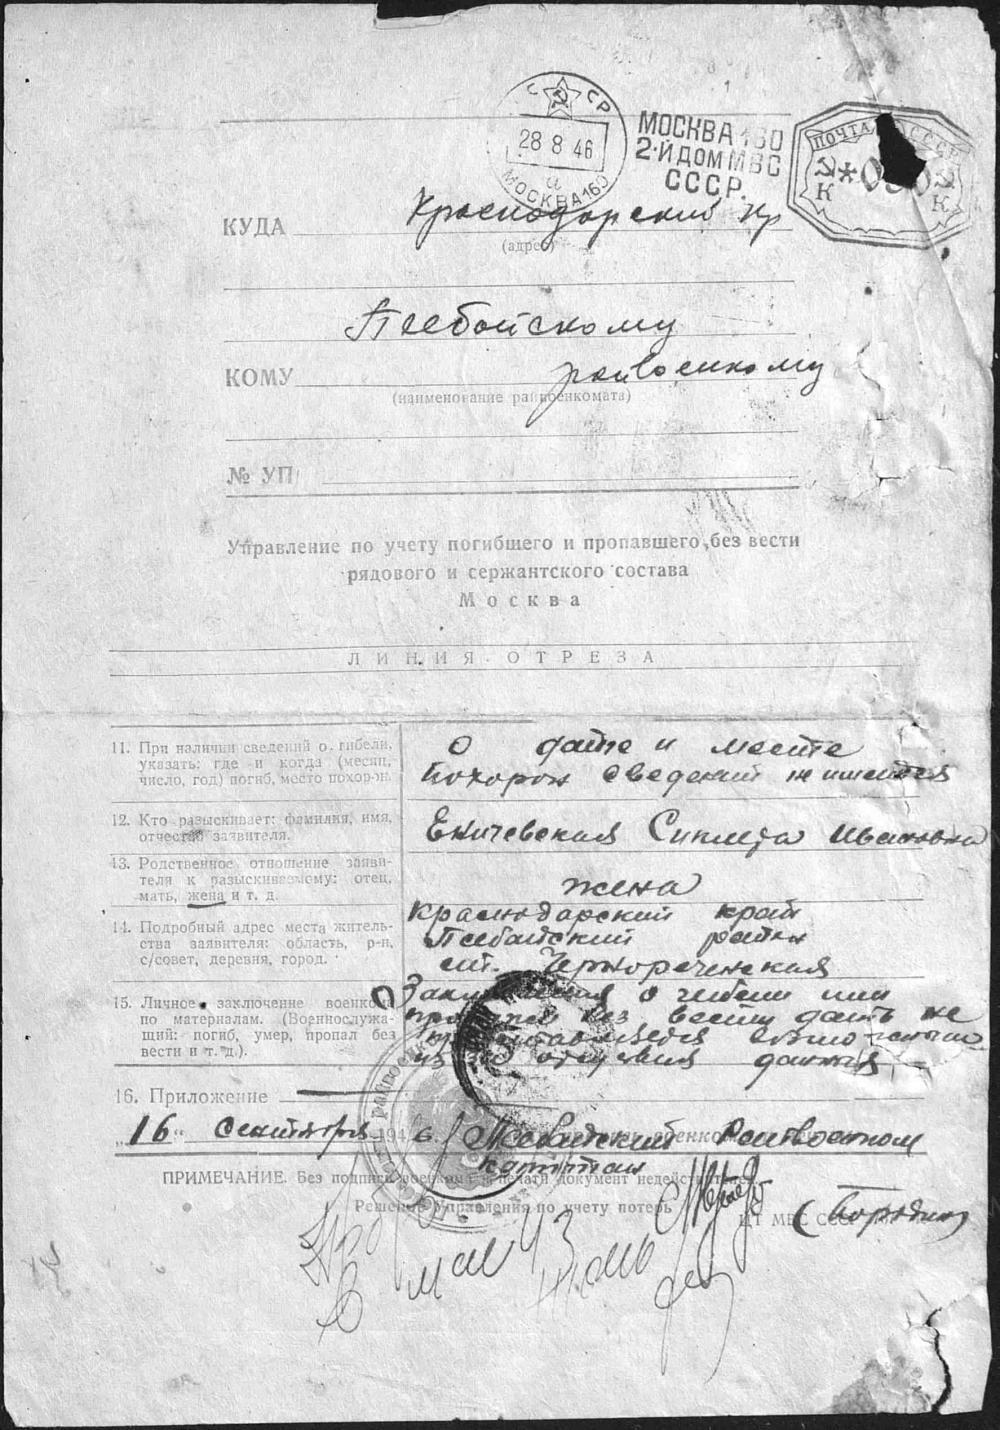 СССР
28 8 46
МОСКВА 160
МОСКВА 160
2-Й ДОМ МВС
СССР.
ПОЧТА СССР
К К
КУДА Краснодарский кр
(адрес)
Псебайскому
КОМУ райвоенкому
(наименование райвоенкомата)
№ УП
Управление по учету погибшего и пропавшего без вести
рядового и сержантского состава
Москва
ЛИНИЯ ОТРЕЗА
11. При наличии сведений о гибели,
указать: где и когда (месяц,
число, год) погиб, место похорон.
О дате и месте
похорон сведений не имеется
12. Кто разыскивает: фамилия, имя,
отчество заявителя.
Ивановна
13. Родственное отношение заяви-
теля к разыскиваемому: отец,
мать, жена и т. д.
жена
14. Подробный адрес места житель-
ства заявителя: область, р-н,
с/совет, деревня, город.
Краснодарский край
Псебайский район
ст. Чернореченская
15. Личное заключение военкома
по материалам. (Военнослужа-
щий: погиб, умер, пропал без
вести и т. д.).
Заключения о гибели или
без вести дать не
данных
16. Приложение
„16“ сентября 1946 Псебайский Райвоенком
капитан
ПРИМЕЧАНИЕ. Без подписи военкома и печати документ недействителен.
Решение Управления по учету потерь
ЦТ МВС СССР
(Бородин)
в мае 43